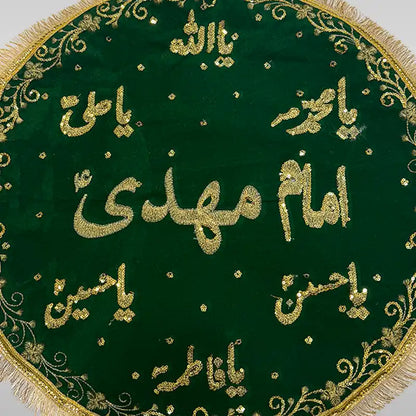 یا الله
یا محمد
یا علی
امام مهدی ع
یا حسن
یا حسین
یا فاطمه